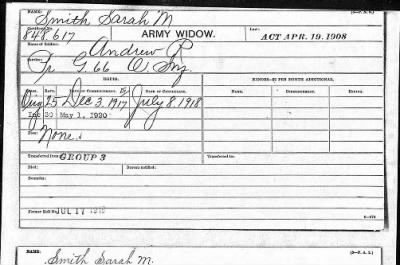 NAME: Smith Sarah M
Certificate No. 848.617 ARMY WIDOW. Law: ACT APR. 19, 1908
Name of Soldier: Andrew P
Service:
G. 66 O. Inf.
RATES. MINORS—$2 PER MONTH ADDITIONAL.
RATE. DATE OF COMMENCEMENT. DATE OF
Orig 25 Dec 3. 1917 July 8. 1918
Inc 30 May 1, 1920
None.
Transferred from GROUP 3 Transferred to:
Died: Bureau notified:
Remarks:
Former Roll No. JUL 17 1918
NAME: Smith Sarah M.